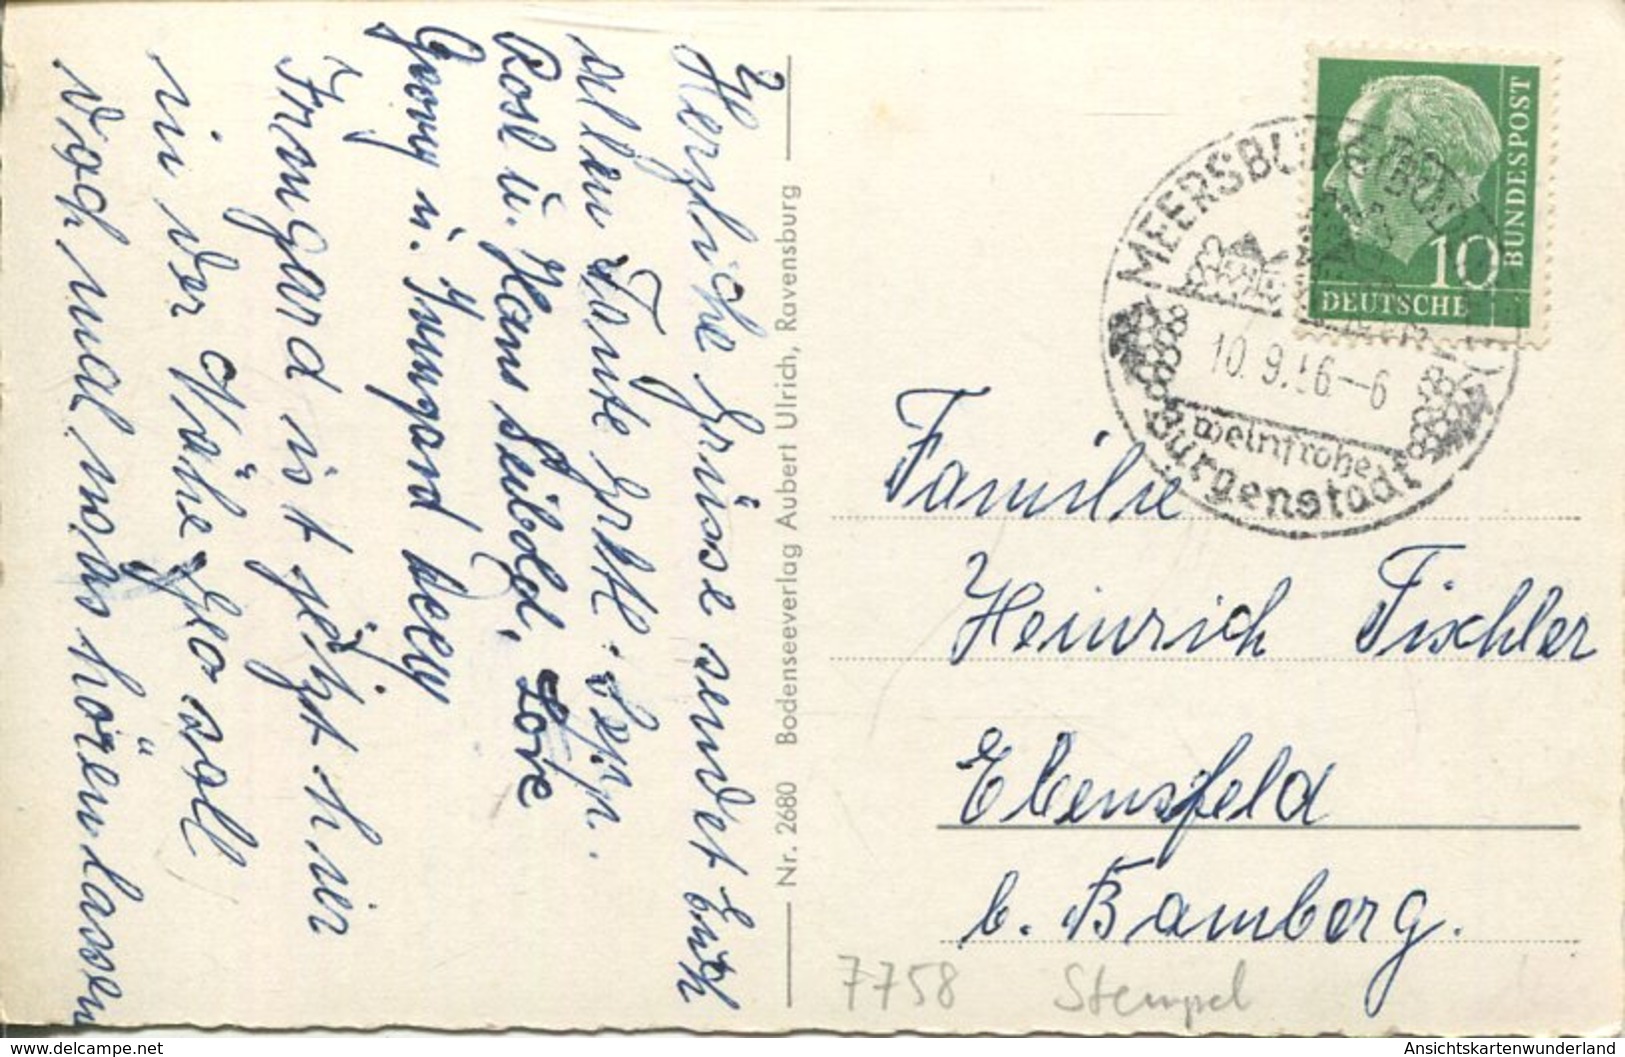 Herzliche Grüsse sendet Euch
allen Tante Gretl. Sepp.
Rosl u. Hans Seibold, Lore
Georg u. Irmgard
Irmgard ist jetzt hier
in der Nähe. Geo soll
doch mal was hören lassen
Nr. 2680 Bodenseeverlag Aubert Ulrich, Ravensburg
DEUTSCHE
BUNDESPOST
10
MEERSBURG (BODENSEE)
10.9.56.-6
weinfrohe
Burgenstadt
Familie
Heinrich Tischler
Ebensfeld
b. Bamberg.
7758 Stempel
www.ansichtskartenwunderland.de
AnsichtskartenWunderland